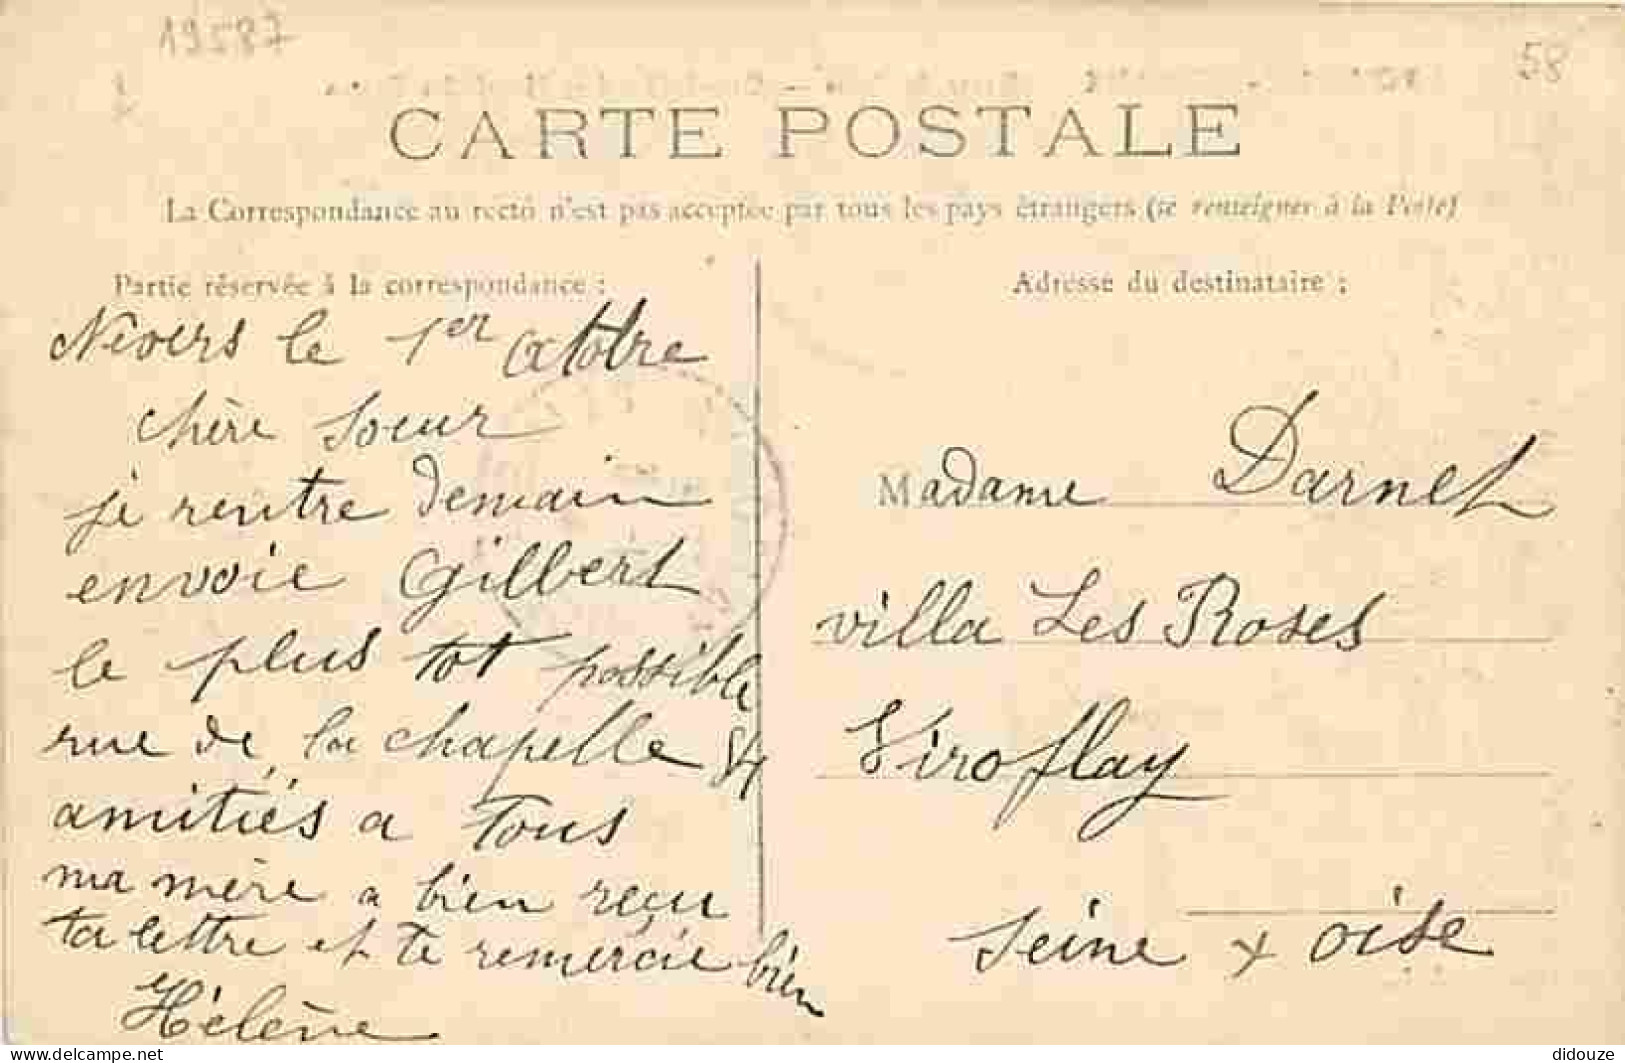 19587
58
CARTE POSTALE
La Correspondance au recto n'est pas acceptée par tous les pays étrangers (se renseigner à la Poste)
Partie réservée à la correspondance :
Nevers le 1er octobre
chère soeur
je rentre demain
envoie Gilbert
le plus tot possible
rue de la chapelle 84
amitiés a tous
ma mère a bien reçu
ta lettre et te remercie bien
Hélène
Adresse du destinataire :
Madame Darnet
villa Les Roses
Viroflay
seine & oise
delcampe.net
didouze